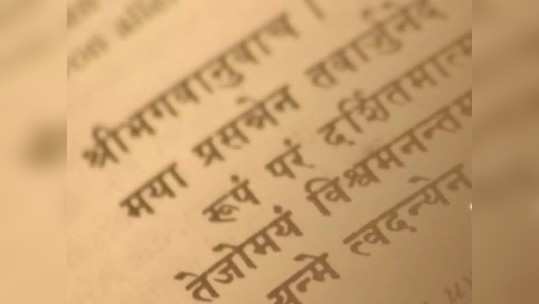 श्रीभगवानुवाच ।
मया प्रसन्नेन तवार्जुनेद
रूपं परं दर्शितमात्म
तेजोमयं विश्वमनन्तम
यन्मे त्वदन्येन